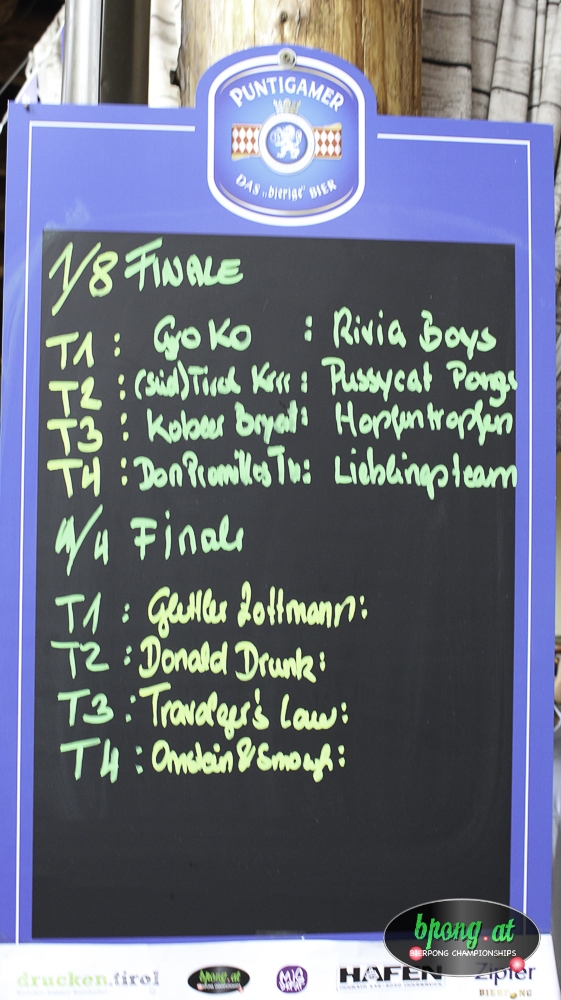 PUNTIGAMER
DAS „bierige“ BIER
1/8 FINALE
T1 : GoKo : Rivia Boys
T2 : (Süd)Tirol Krrr : Pussycat Pongs
T3 : Kobeer Bryat : Hopfentropfen
T4 : Don Promillos Tu : Lieblingsteam
1/4 Finale
T1 : Zottmann :
T2 : Donald Drunk :
T3 : Law :
T4 : Ornstein & Smough :
bpong.at
BIERPONG CHAMPIONSHIPS
drucken.tirol
bpong.at
HAFEN
Zipfer
BIERPONG